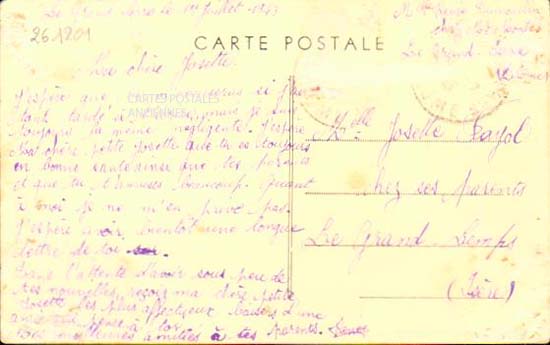 Le Grand Serre le 1er Juillet 1943
261201
CARTE POSTALE
Ma chère Josette.
J'espère que
CARTES POSTALES
ANCIENNES
tant tardé à
toujours la même négligente. J'espère
ma chère petite Josette que tu es toujours
en bonne santé ainsi que tes parents
et que tu t'amuses beaucoup. Quant
à moi je ne m'en prive pas.
J'espère avoir bientôt une longue
lettre de toi
Dans l'attente d'avoir sous peu de
tes nouvelles, reçois ma chère petite
Josette les plus affectueux baisers d'une
amie qui pense à toi
meilleures amitiés à tes parents.
Le Grand-Serre
(Drôme)
Melle Josette
chez ses parents
Le Grand-Lemps
(Isère)